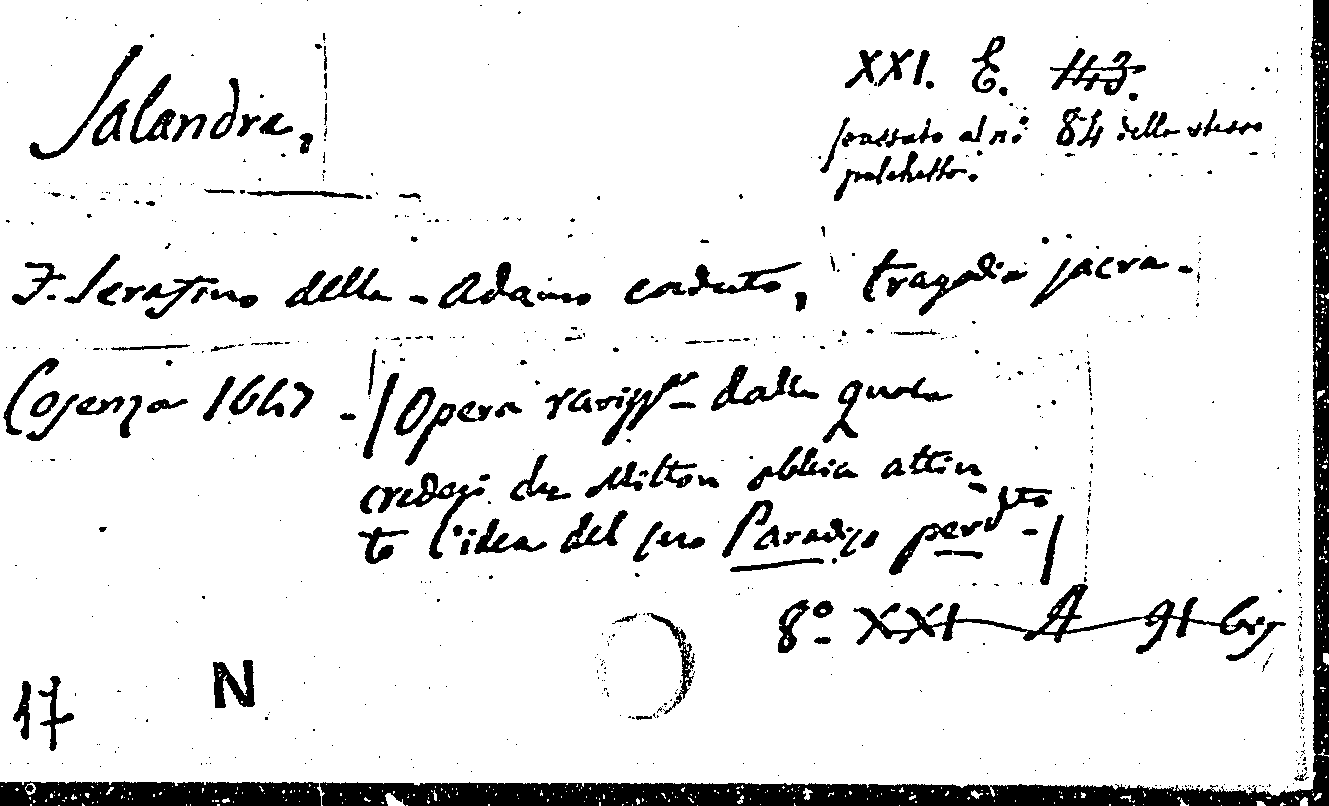 Salandra,
XXI. E. 143.
passato al nº 84 dello stesso
palchetto.
F. Serafino della - Adamo caduto, tragedia sacra -
Cosenza 1647 - / Opera rariss.ª - dalla quale
credesi che Milton abbia attin
to l'idea del suo Paradiso perduto - /
8º XXI A 91 bis
17 N